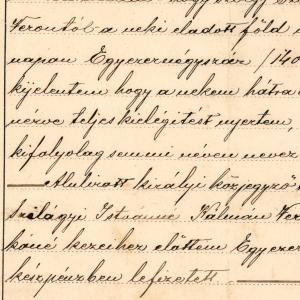 Verontól a neki eladott föld
napan Egyezernégyszáz /140
kijelentem hogy a nekem hátra
nézve teljes kielégitést nyertem,
kifolyolag semmi néven nevez
Alulirott királyi közjegyző
Szilágyi Istvánné Kálmán Ver
káné kezeihez előttem Egyezer
készpénzben lefizetett